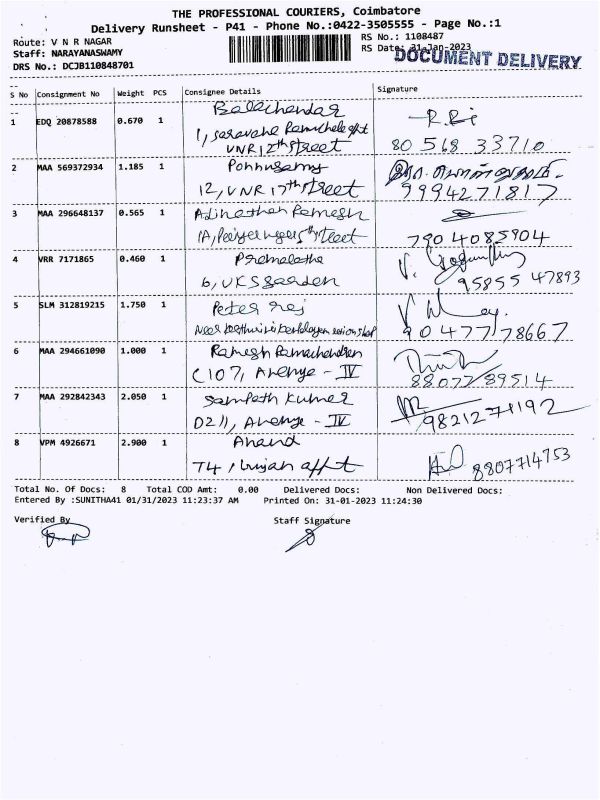 THE PROFESSIONAL COURIERS, Coimbatore
Delivery Runsheet - P41 - Phone No.:0422-3505555 - Page No.:1
Route: V N R NAGAR
RS No.: 1108487
Staff: NARAYANASWAMY
RS Date: 31-Jan-2023
DOCUMENT DELIVERY
DRS No.: DCJB110848701
S No Consignment No Weight PCS Consignee Details Signature
1 EDQ 20878588 0.670 1 Balachandar
1, Saravana apt
VNR 12th street
80 568 33710
2 MAA 569372934 1.185 1 Ponnusamy
12, VNR 17th street
9994271817
3 MAA 296648137 0.565 1 Adinathan Ramesh
1A, 5th street
7904085904
4 VRR 7171865 0.460 1 Premalatha
6, VKS garden
95855 47893
5 SLM 312819215 1.750 1 Peter raj
Near
90477 78667
6 MAA 294661090 1.000 1 Ramesh Ramachandran
C107, Avenue - IV
88077 89514
7 MAA 292842343 2.050 1 Sampath Kumar
D211, Avenue - IV
9821271192
8 VPM 4926671 2.900 1 Anand
T4, apt
8807714753
Total No. Of Docs: 8 Total COD Amt: 0.00 Delivered Docs: Non Delivered Docs:
Entered By :SUNITHA41 01/31/2023 11:23:37 AM Printed On: 31-01-2023 11:24:30
Verified By Staff Signature